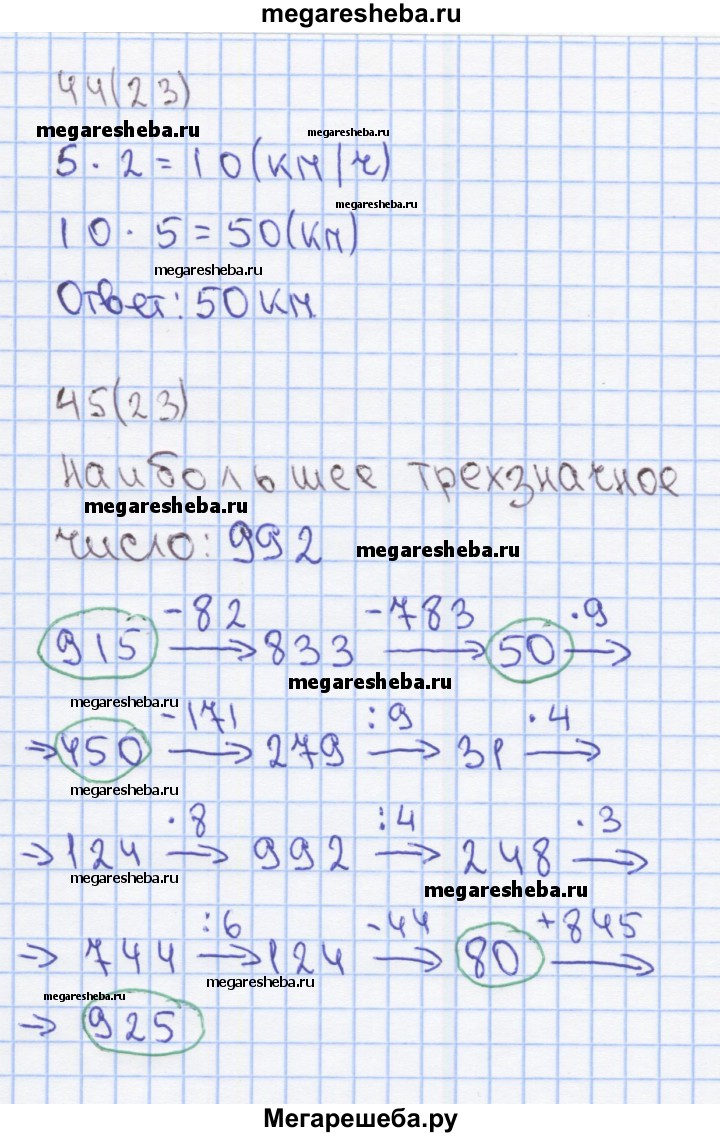 megaresheba.ru
44(23)
megaresheba.ru megaresheba.ru
5 · 2 = 10(км/ч)
megaresheba.ru
10 · 5 = 50(км)
megaresheba.ru
Ответ: 50км
45(23)
наибольшее трехзначное
megaresheba.ru
число: 992 megaresheba.ru
-82 -783 ·9
915 → 833 → 50 →
megaresheba.ru
megaresheba.ru
-171 :9 ·4
→ 450 → 279 → 31 →
megaresheba.ru
·8 :4 ·3
→ 124 → 992 → 248 →
megaresheba.ru megaresheba.ru
:6 -44 +845
→ 744 → 124 → 80 →
megaresheba.ru
megaresheba.ru
→ 925
Мегарешеба.ру